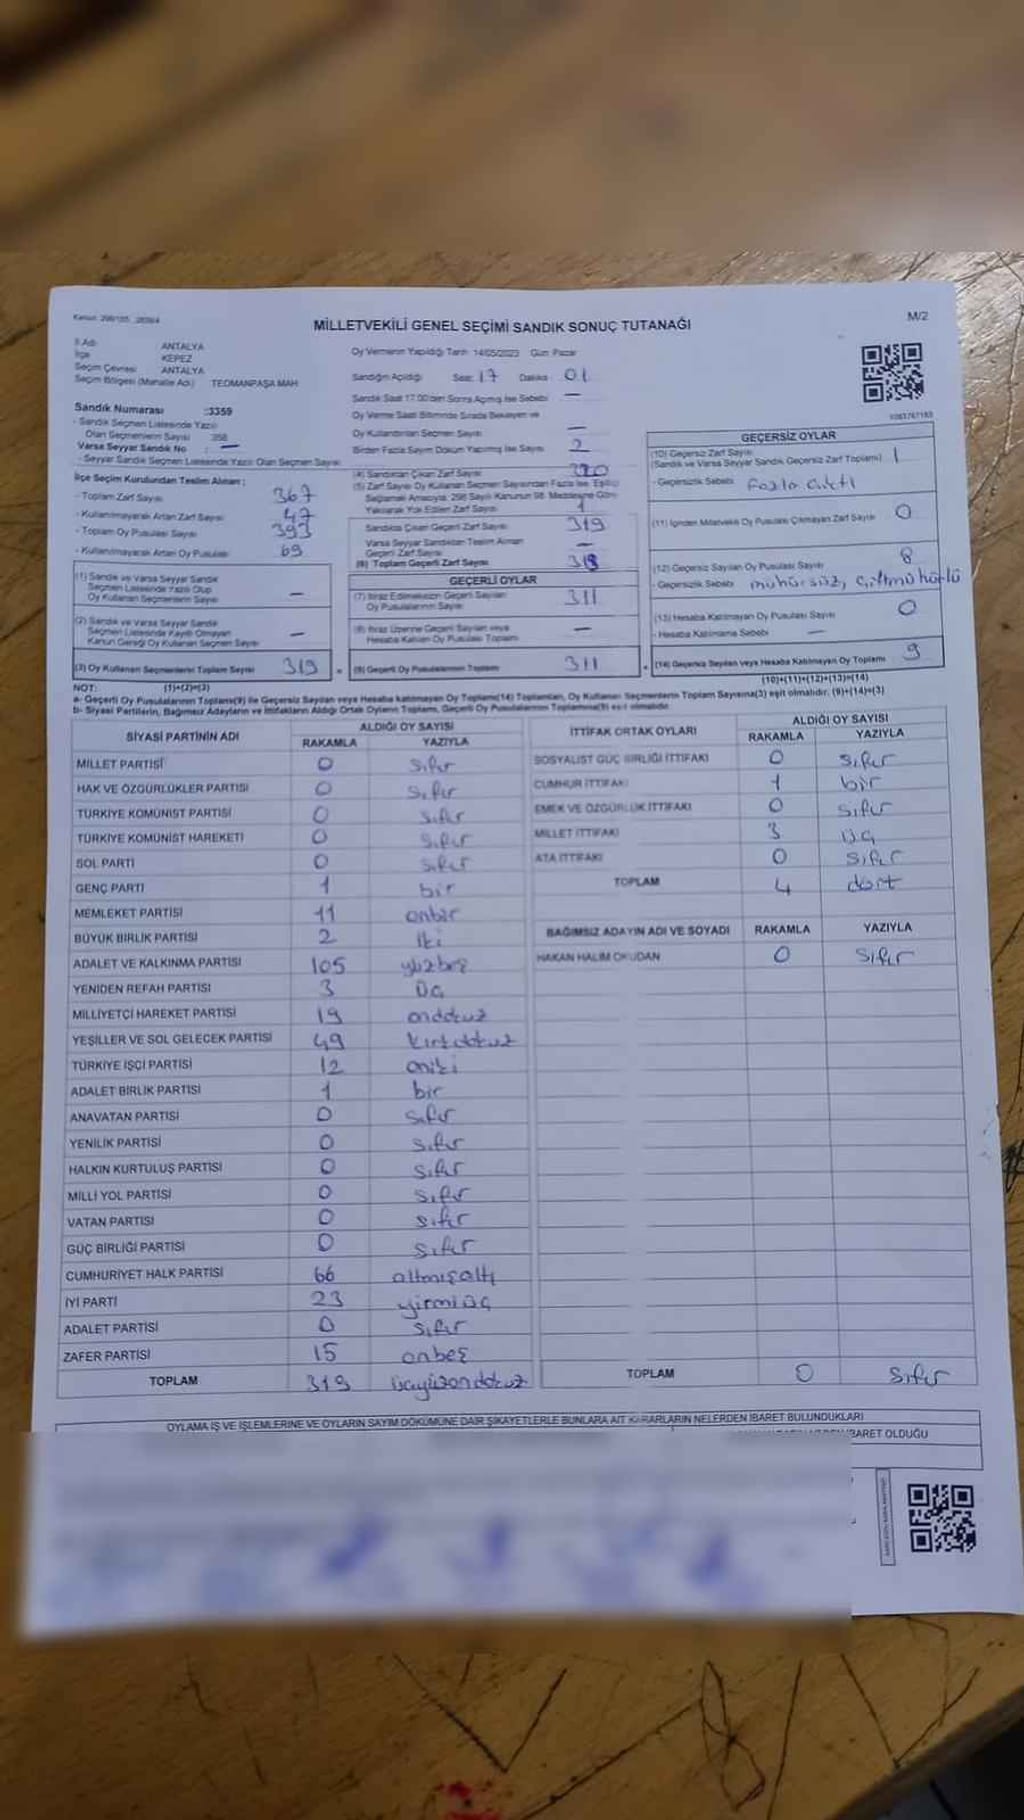 M/2
MİLLETVEKİLİ GENEL SEÇİMİ SANDIK SONUÇ TUTANAĞI
İl Adı ANTALYA
İlçe KEPEZ
Seçim Çevresi ANTALYA
Seçim Bölgesi (Mahalle Adı) TEOMANPAŞA MAH
Sandık Numarası :3359
- Sandık Seçmen Listesinde Yazılı
Olan Seçmenlerin Sayısı 358
Varsa Seyyar Sandık No : —
- Seyyar Sandık Seçmen Listesinde Yazılı Olan Seçmen Sayısı
İlçe Seçim Kurulundan Teslim Alınan ;
- Toplam Zarf Sayısı 367
- Kullanılmayarak Artan Zarf Sayısı 47
- Toplam Oy Pusulası Sayısı 393
- Kullanılmayarak Artan Oy Pusulası 69
(1) Sandık ve Varsa Seyyar Sandık
Seçmen Listesinde Yazılı Olup
Oy Kullanan Seçmenlerin Sayısı —
(2) Sandık ve Varsa Seyyar Sandık
Seçmen Listesinde Kayıtlı Olmayan
Kanun Gereği Oy Kullanan Seçmen Sayısı —
(3) Oy Kullanan Seçmenlerin Toplam Sayısı 319
Oy Vermenin Yapıldığı Tarih 14/05/2023 Gün Pazar
Sandığın Açıldığı Saat 17 Dakika 01
Sandık Saat 17.00'den Sonra Açılmış İse Sebebi —
Oy Verme Saati Bitiminde Sırada Bekleyen ve
Oy Kullandırılan Seçmen Sayısı —
Birden Fazla Sayım Döküm Yapılmış İse Sayısı 2
(4) Sandıktan Çıkan Zarf Sayısı 320
(5) Zarf Sayısı Oy Kullanan Seçmen Sayısından Fazla İse, Eşitliği
Sağlamak Amacıyla, 298 Sayılı Kanunun 98. Maddesine Göre
Yakılarak Yok Edilen Zarf Sayısı 1
Sandıkta Çıkan Geçerli Zarf Sayısı 319
Varsa Seyyar Sandıktan Teslim Alınan
Geçerli Zarf Sayısı —
(6) Toplam Geçerli Zarf Sayısı
GEÇERLİ OYLAR
(7) İtiraz Edilmeksizin Geçerli Sayılan
Oy Pusulalarının Sayısı 311
(8) İtiraz Üzerine Geçerli Sayılan veya
Hesaba Katılan Oy Pusulaları Toplamı —
(9) Geçerli Oy Pusulalarının Toplamı 311
GEÇERSİZ OYLAR
(10) Geçersiz Zarf Sayısı
(Sandık ve Varsa Seyyar Sandık Geçersiz Zarf Toplamı) 1
- Geçersizlik Sebebi fazla çıktı
(11) İçinden Milletvekili Oy Pusulası Çıkmayan Zarf Sayısı 0
(12) Geçersiz Sayılan Oy Pusulası Sayısı 8
- Geçersizlik Sebebi mühürsüz, çift mühürlü
(13) Hesaba Katılmayan Oy Pusulası Sayısı 0
- Hesaba Katılmama Sebebi —
(14) Geçersiz Sayılan veya Hesaba Katılmayan Oy Toplamı 9
NOT: (1)+(2)=(3) (10)+(11)+(12)+(13)=(14)
a- Geçerli Oy Pusulalarının Toplamı(9) ile Geçersiz Sayılan veya Hesaba katılmayan Oy Toplamı(14) Toplamları, Oy Kullanan Seçmenlerin Toplam Sayısına(3) eşit olmalıdır. (9)+(14)=(3)
b- Siyasi Partilerin, Bağımsız Adayların ve İttifakların Aldığı Ortak Oyların Toplamı, Geçerli Oy Pusulalarının Toplamına(9) eşit olmalıdır.
SİYASİ PARTİNİN ADI ALDIĞI OY SAYISI
RAKAMLA YAZIYLA
MİLLET PARTİSİ 0 sıfır
HAK VE ÖZGÜRLÜKLER PARTİSİ 0 sıfır
TÜRKİYE KOMÜNİST PARTİSİ 0 sıfır
TÜRKİYE KOMÜNİST HAREKETİ 0 sıfır
SOL PARTİ 0 sıfır
GENÇ PARTİ 1 bir
MEMLEKET PARTİSİ 11 onbir
BÜYÜK BİRLİK PARTİSİ 2 iki
ADALET VE KALKINMA PARTİSİ 105 yüzbeş
YENİDEN REFAH PARTİSİ 3 üç
MİLLİYETÇİ HAREKET PARTİSİ 19 ondokuz
YEŞİLLER VE SOL GELECEK PARTİSİ 49 kırkdokuz
TÜRKİYE İŞÇİ PARTİSİ 12 oniki
ADALET BİRLİK PARTİSİ 1 bir
ANAVATAN PARTİSİ 0 sıfır
YENİLİK PARTİSİ 0 sıfır
HALKIN KURTULUŞ PARTİSİ 0 sıfır
MİLLİ YOL PARTİSİ 0 sıfır
VATAN PARTİSİ 0 sıfır
GÜÇ BİRLİĞİ PARTİSİ 0 sıfır
CUMHURİYET HALK PARTİSİ 66 altmışaltı
İYİ PARTİ 23 yirmiüç
ADALET PARTİSİ 0 sıfır
ZAFER PARTİSİ 15 onbeş
TOPLAM 319 üçyüzondokuz
İTTİFAK ORTAK OYLARI ALDIĞI OY SAYISI
RAKAMLA YAZIYLA
SOSYALİST GÜÇ BİRLİĞİ İTTİFAKI 0 sıfır
CUMHUR İTTİFAKI 1 bir
EMEK VE ÖZGÜRLÜK İTTİFAKI 0 sıfır
MİLLET İTTİFAKI 3 üç
ATA İTTİFAKI 0 sıfır
TOPLAM 4 dört
BAĞIMSIZ ADAYIN ADI VE SOYADI RAKAMLA YAZIYLA
HAKAN HALİM OKUDAN 0 sıfır
TOPLAM 0 sıfır
OYLAMA İŞ VE İŞLEMLERİNE VE OYLARIN SAYIM DÖKÜMÜNE DAİR ŞİKAYETLERLE BUNLARA AİT KARARLARIN NELERDEN İBARET BULUNDUKLARI
İBARET OLDUĞU